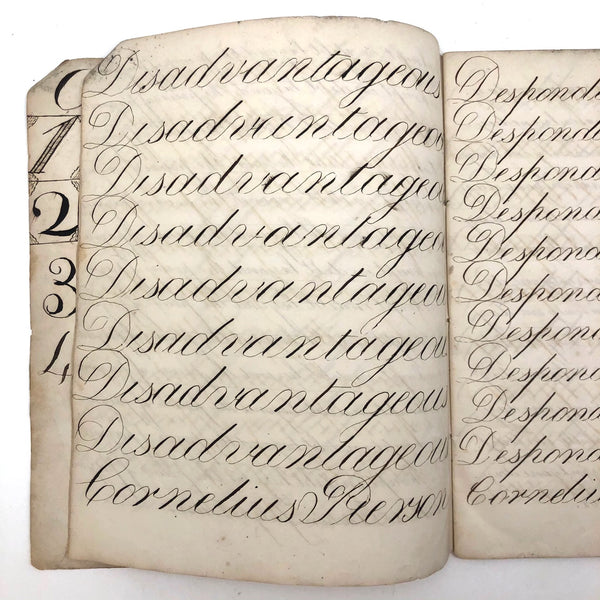 1
2
3
4
Disadvantageous
Disadvantageous
Disadvantageous
Disadvantageous
Disadvantageous
Disadvantageous
Disadvantageous
Disadvantageous
Cornelius Pierson
Despond
Despond
Despond
Despond
Despond
Despond
Despond
Despond
Despond
Despond
Cornelius